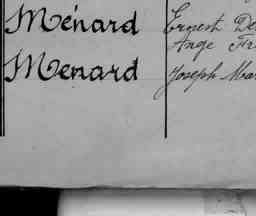 Ménard Ernest De
Ange Fr
Menard Joseph Ma